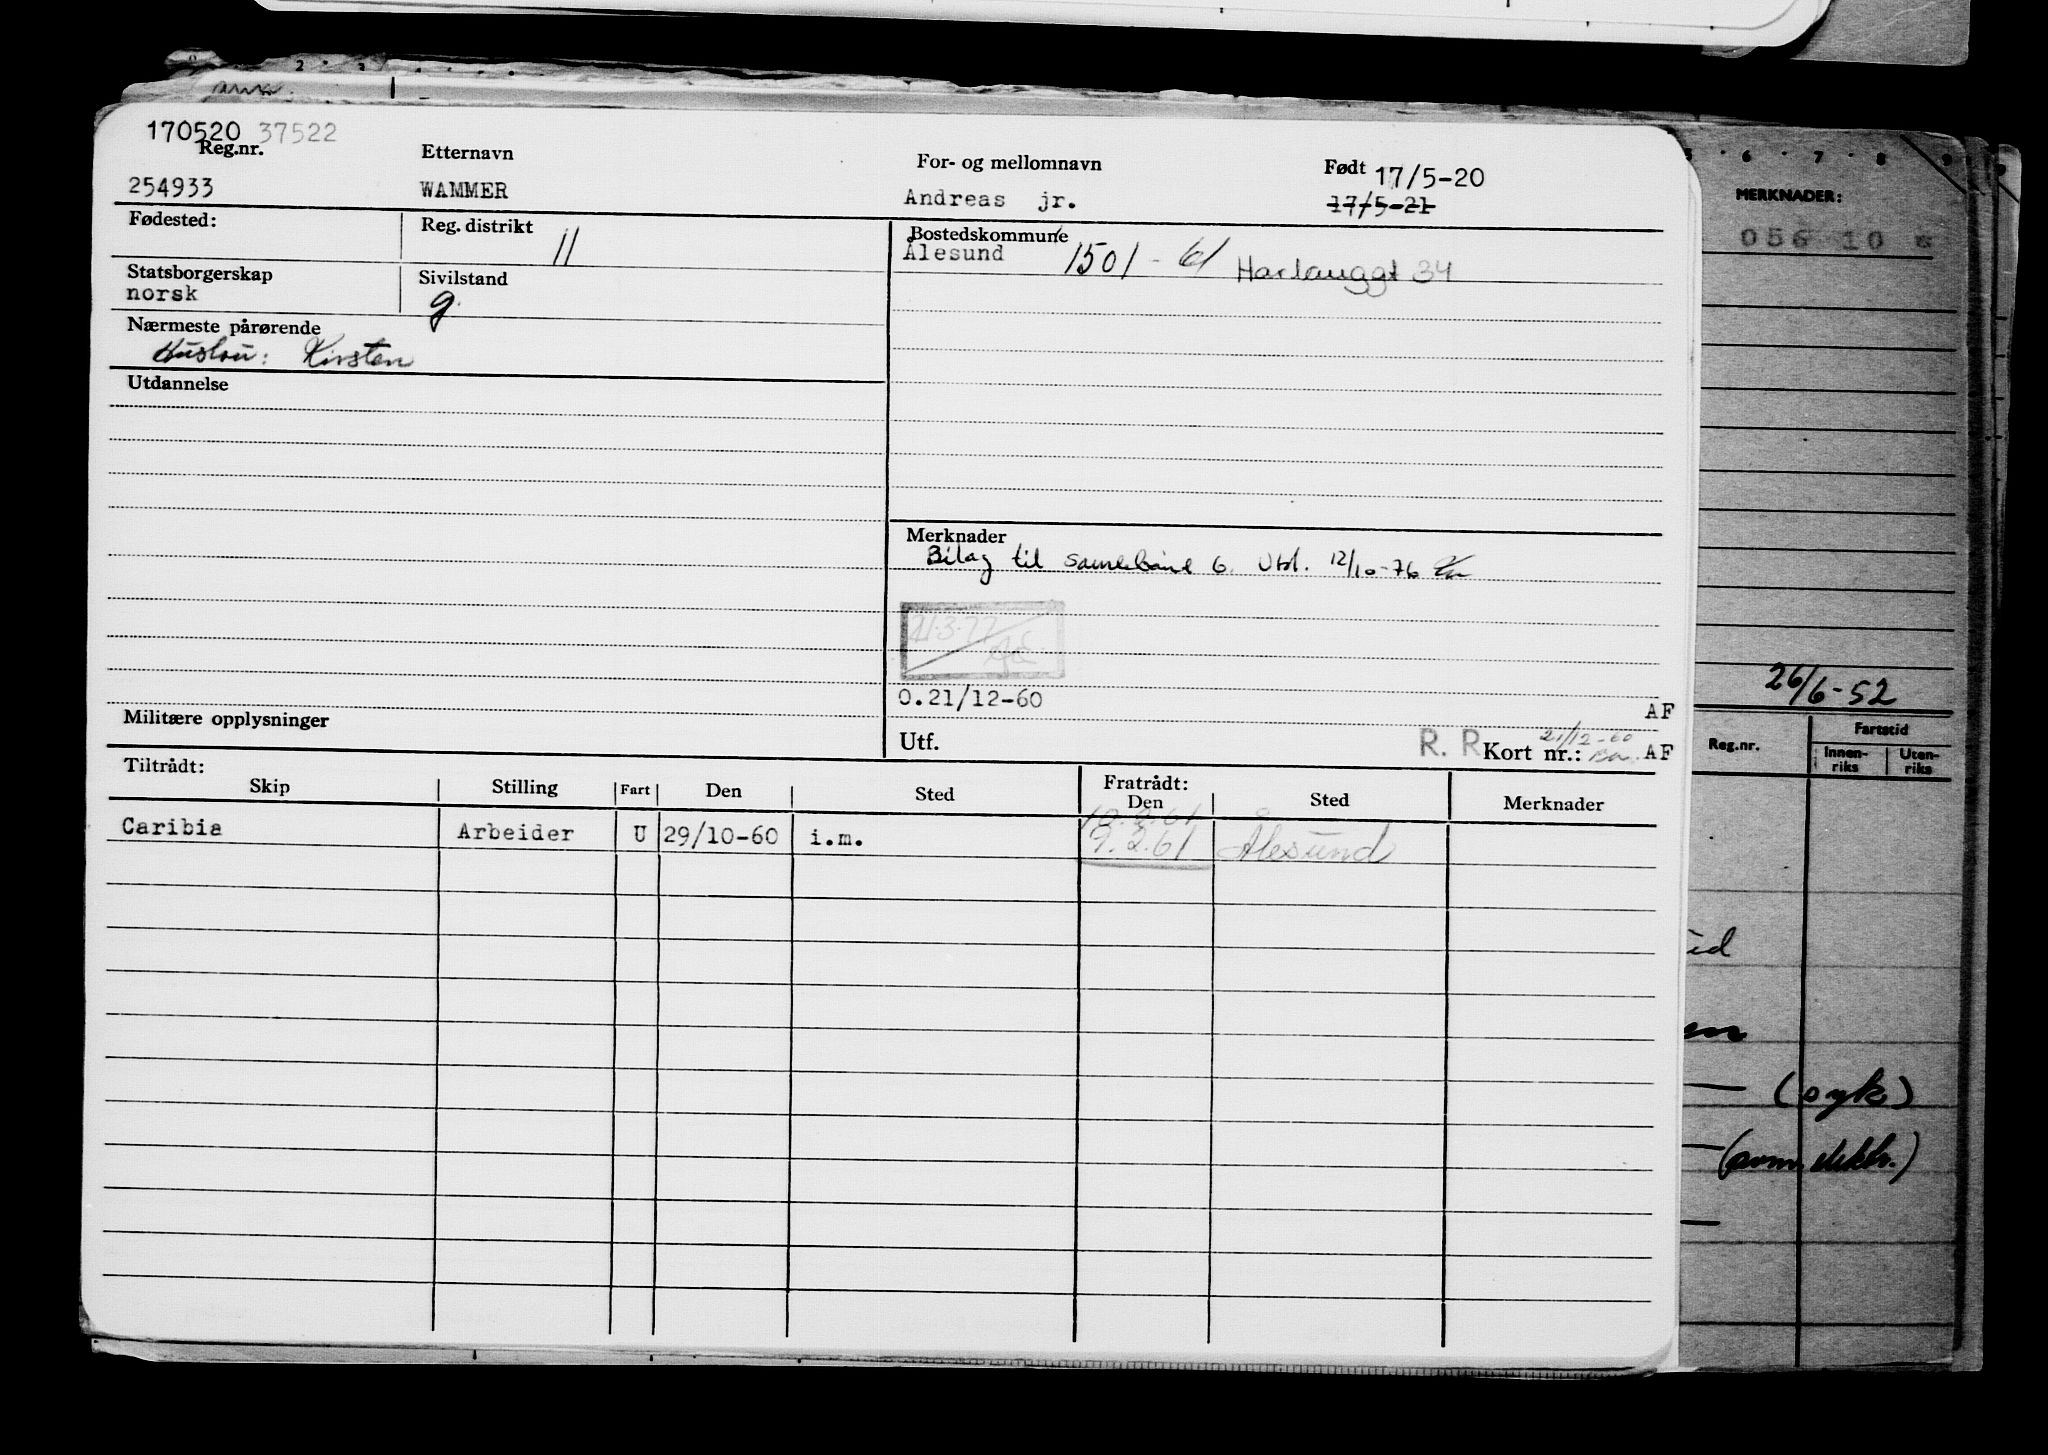 170520 37522
Reg.nr. Etternavn For- og mellomnavn Født 17/5-20
254933 WAMMER Andreas jr. 17/5-21
Fødested: Reg. distrikt 11 Bostedskommune
Ålesund 1501 - 61 Harlauggt 34
Statsborgerskap Sivilstand
norsk g.
Nærmeste pårørende
Hustru: Kirsten
Utdannelse
Merknader
Bilag til 6. Utst. 12/10-76
21.3.77
O.21/12-60 AF
Militære opplysninger
Utf. R. R Kort nr.: 21/12-60 AF
Tiltrådt: Fratrådt:
Skip Stilling Fart Den Sted Den Sted Merknader
Caribia Arbeider U 29/10-60 i.m. 9.2.61 Ålesund
6 7 8 9
MERKNADER:
056 10
26/6-52
Reg.nr. Fartstid
Innen-riks Uten-riks
(syk)